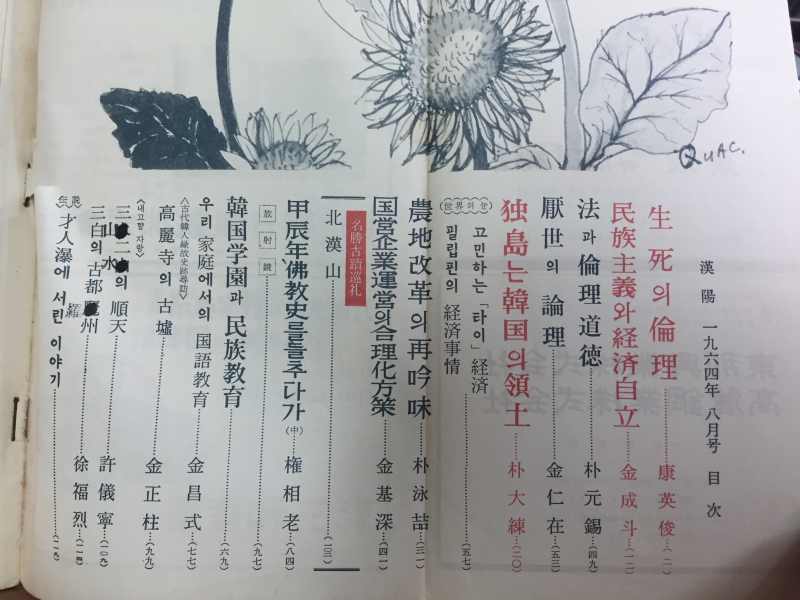 QUAC.
漢陽 一九六四年 八月号 目次
生死의 倫理 康英俊 (二)
民族主義와 経済自立 金成斗 (一二)
法과 倫理道徳 朴元錫 (四九)
厭世의 論理 金仁在 (五三)
独島는 韓国의 領土 朴大練 (二〇)
(世界의 눈)
고민하는「타이」経済
필립핀의 経済事情 (五七)
農地改革의 再吟味 朴泳喆 (三一)
国営企業運営의 合理化方策 金基深 (四一)
名勝古蹟巡礼
北漢山 (一〇二)
甲辰年佛教史를 들추다가 (中) 権相老 (八四)
放射鏡 (九七)
韓国学園과 民族教育 (六九)
우리 家庭에서의 国語教育 金昌式 (七七)
〈古代韓人縁故史跡尋訪〉
高麗寺의 古墟 金正柱 (九九)
〈내고향 자랑〉
三山二水의 順天 許儀寧 (一〇九)
三白의 古都 羅州 徐福烈 (一一四)
才人瀑에 서린 이야기 (一一九)